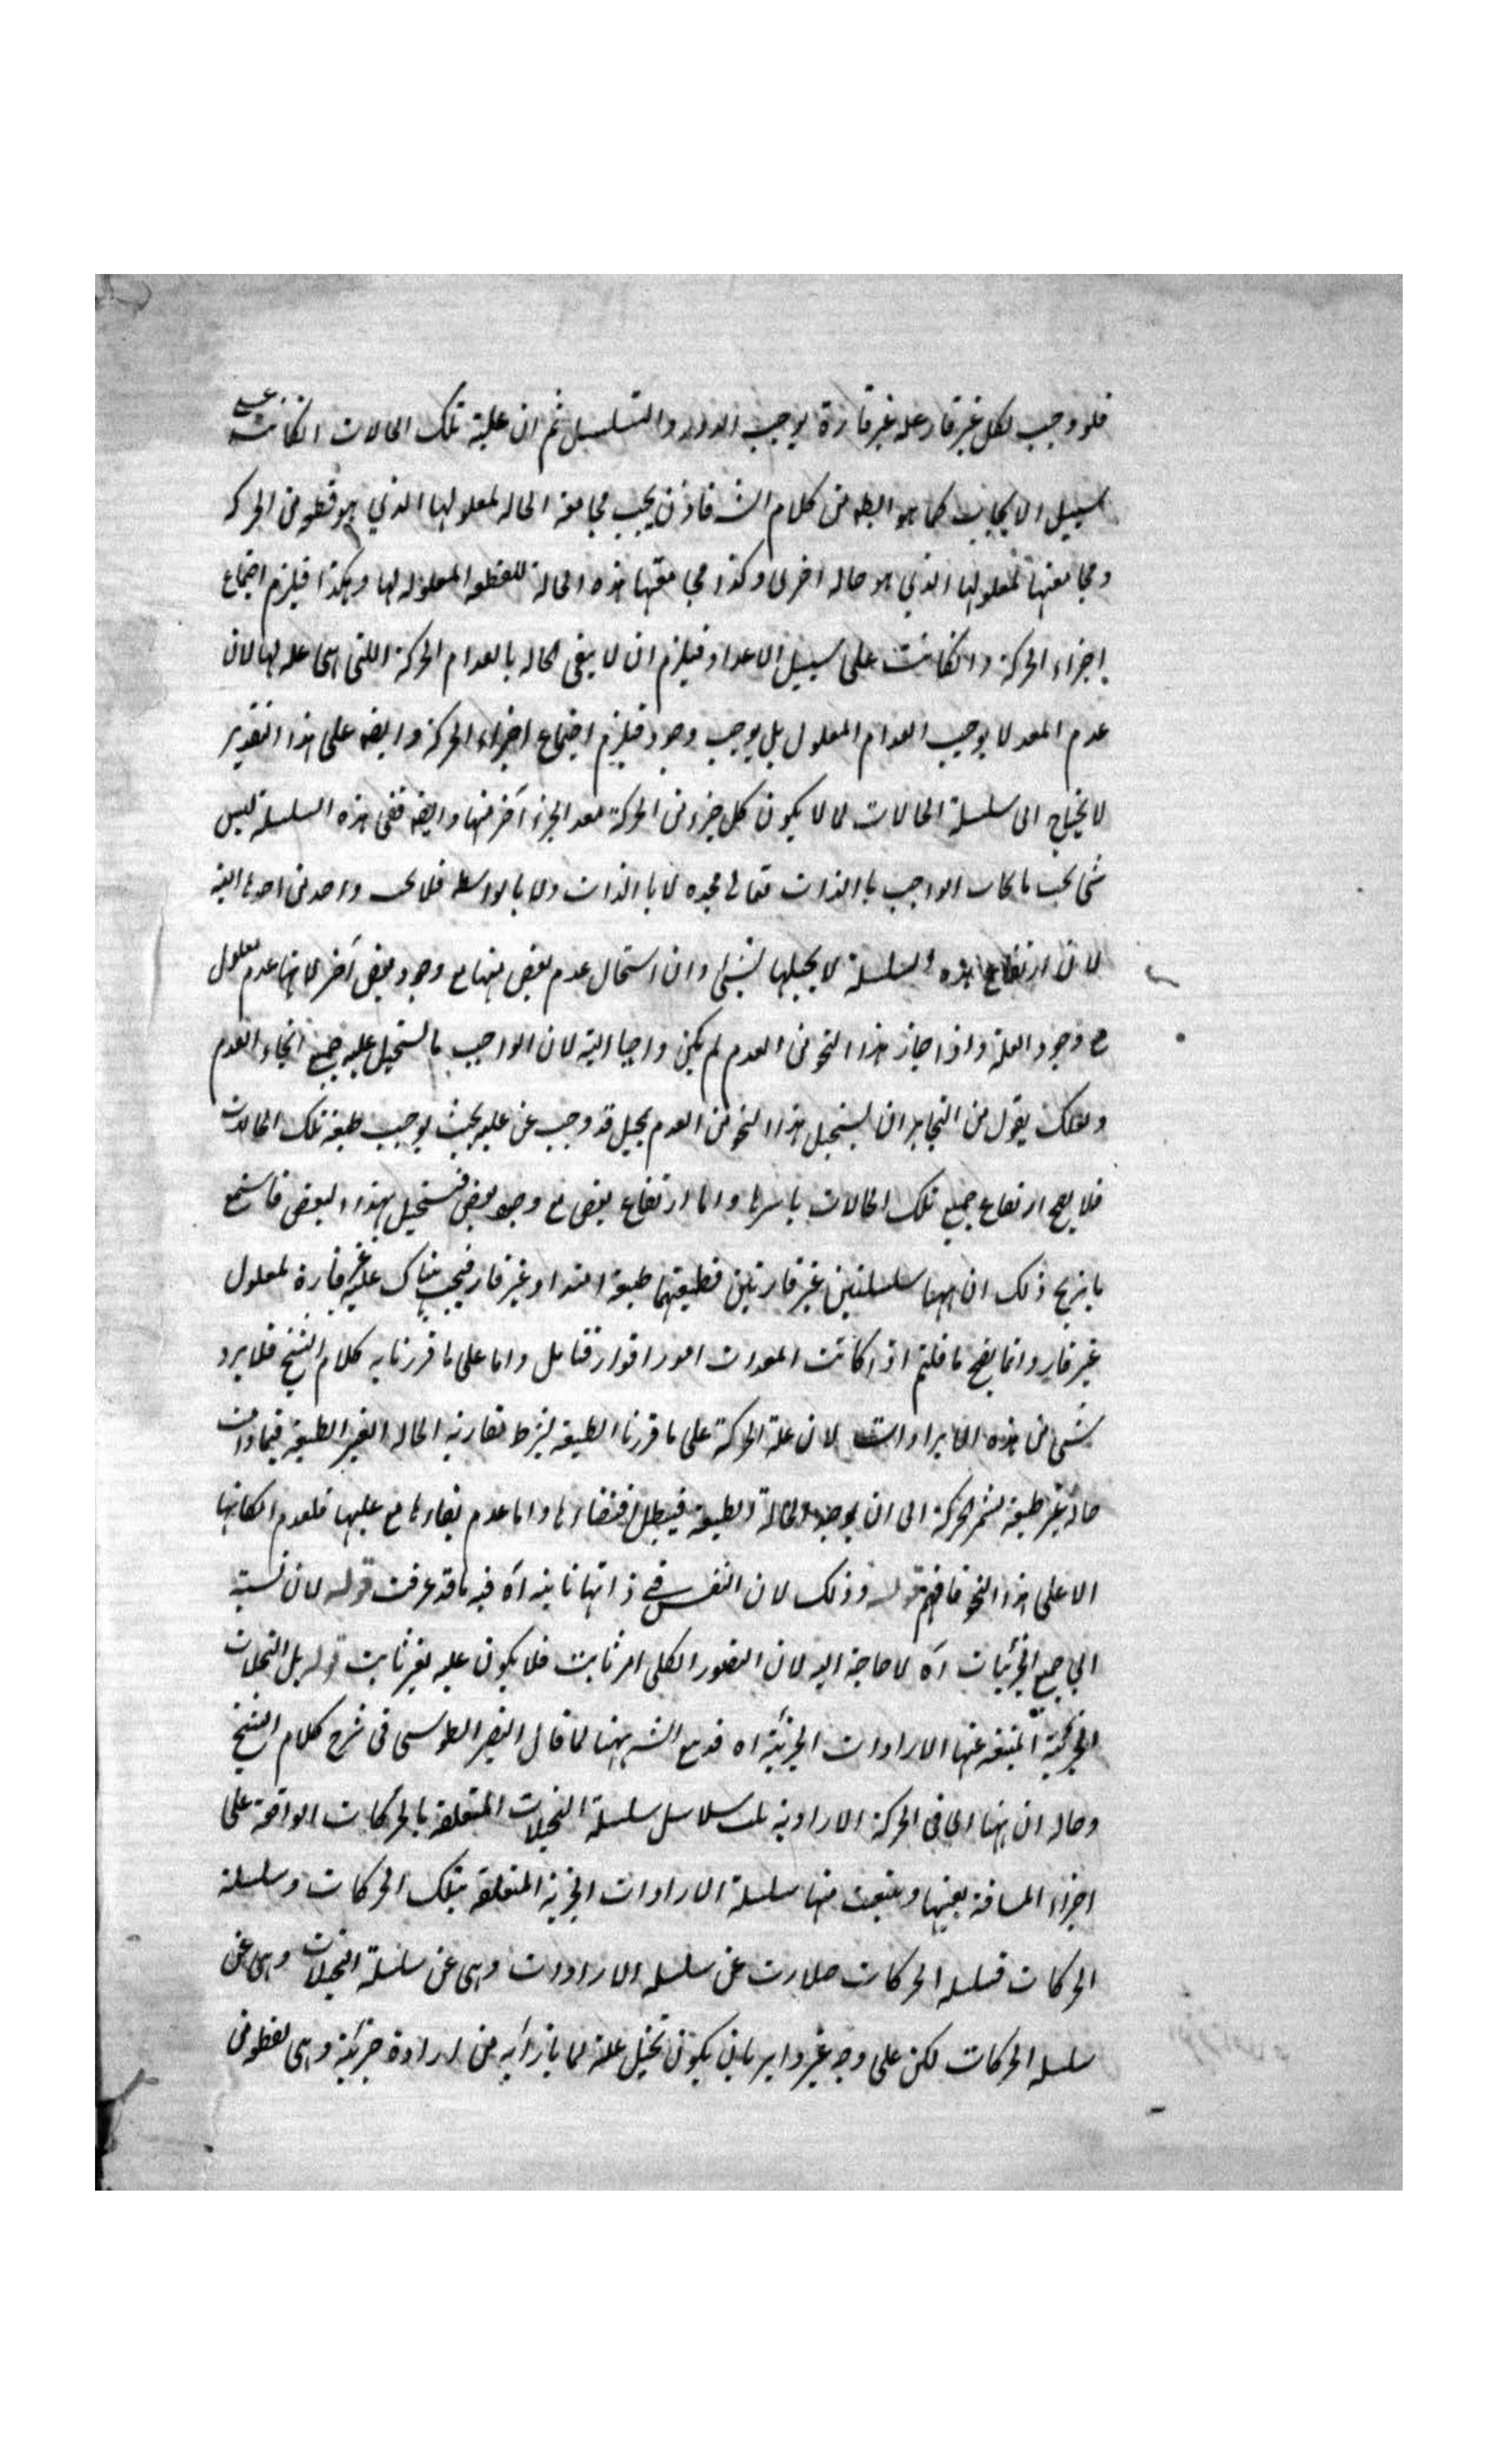 فلو وجب لكل غير قار علة غير قارة يوجب الدور والتسلسل ثم ان علية تلك الحالات انكانت على
سبيل الايجاب كما هو الظ من كلام الش فاذن يجب مجامعة الحالة لمعلولها الذي هو قطعة من الحركة
ومجامعتها لمعلولها الذي هو حالة اخرى وكذا مجامعتها هذه الحالة للقطعة المعلولة لها وهكذا فيلزم اجتماع
اجزاء الحركة وانكانت على سبيل الاعداد فيلزم ان لا يبقى الحالة بانعدام الحركة اللتى هى علة لها لان
عدم المعد لا يوجب انعدام المعلول بل يوجب وجوده فيلزم اجتماع اجزاء الحركة وايضه على هذا التقدير
لا يحتاج الى سلسلة الحالات لم لا يكون كل جزء من الحركة معد الجزء آخر منها وايضه ففى هذه السلسلة ليس
شى يجب بايجاب الواجب باالذات تعالى مجده لا باالذات ولا بالواسطة فلا يجب واحد من احدها البتة
لان ارتفاع هذه السلسلة لا يحيلها لشئ وان استحال عدم بعض منها مع وجود بعض آخر لانها عدم معلول
مع وجود العلة واذا جاز هذا النحو من العدم لم يكن واجبا البتة لان الواجب ما يستحيل عليه جميع انحاء العدم
ولعلك يقول من الجايز ان يستحيل هذا النحو من العدم بحيل قد وجب عن عليه بحيث يوجب طبيعة تلك الحالات
فلا يصح ارتفاع جميع تلك الحالات باسرها واما ارتفاع بعض مع وجود بعض فيستحيل بهذا البعض فاستمع
ما يزيح ذلك ان ههنا سلسلتين غير قارتين فطبيعتهما طبيعة امتداد غير قار فيجب هناك علة غير قارة لمعلول
غير قار وانما يصح ما قلتم اذا كانت المعدات امورا قوار فتامل واما على ما قررنا به كلام الشيخ فلا يرد
شئ من هذه الايرادات لان علة الحركة على ما قررنا الطبيعة بشرط مقارنة الحالة الغير الطبيعية فما دامت
حالة غير طبيعية يستمر الحركة الى ان يوجد الحالة الطبيعية فيبطل اقتضاءها واما عدم بقاءها مع عليها فلعدم امكانها
الا على هذا النحو فافهم قوله وذلك لان النفس في ذاتها ثابتة آه فيه ما قد عرفت قوله لان نسبته
الى جميع الجزئيات آه لا حاجة اليه لان التصور الكلى امر ثابت فلا يكون عليه لغير ثابت قوله بل التخيلات
الجزئية المنبعثة عنها الارادات الجزئية اه قد تبع الشه ههنا لما قال النصير الطوسى فى شرح كلام الشيخ
وحاله ان ههنا اى فى الحركة الارادية ثلث سلاسل سلسلة التخيلات المتعلقة بالحركات الواقعة على
اجزاء المسافة بعينها وينبعث منها سلسلة الارادات الجزئية المتعلقة بتلك الحركات وسلسلة
الحركات فسلسلة الحركات صادرت عن سلسلة الارادات وهى عن سلسلة التخيلات وهى عن
سلسلة الحركات لكن على وجه غير داير بان يكون تخيل علة لما بازائه من ارادة جزئية وهى لقطعة من